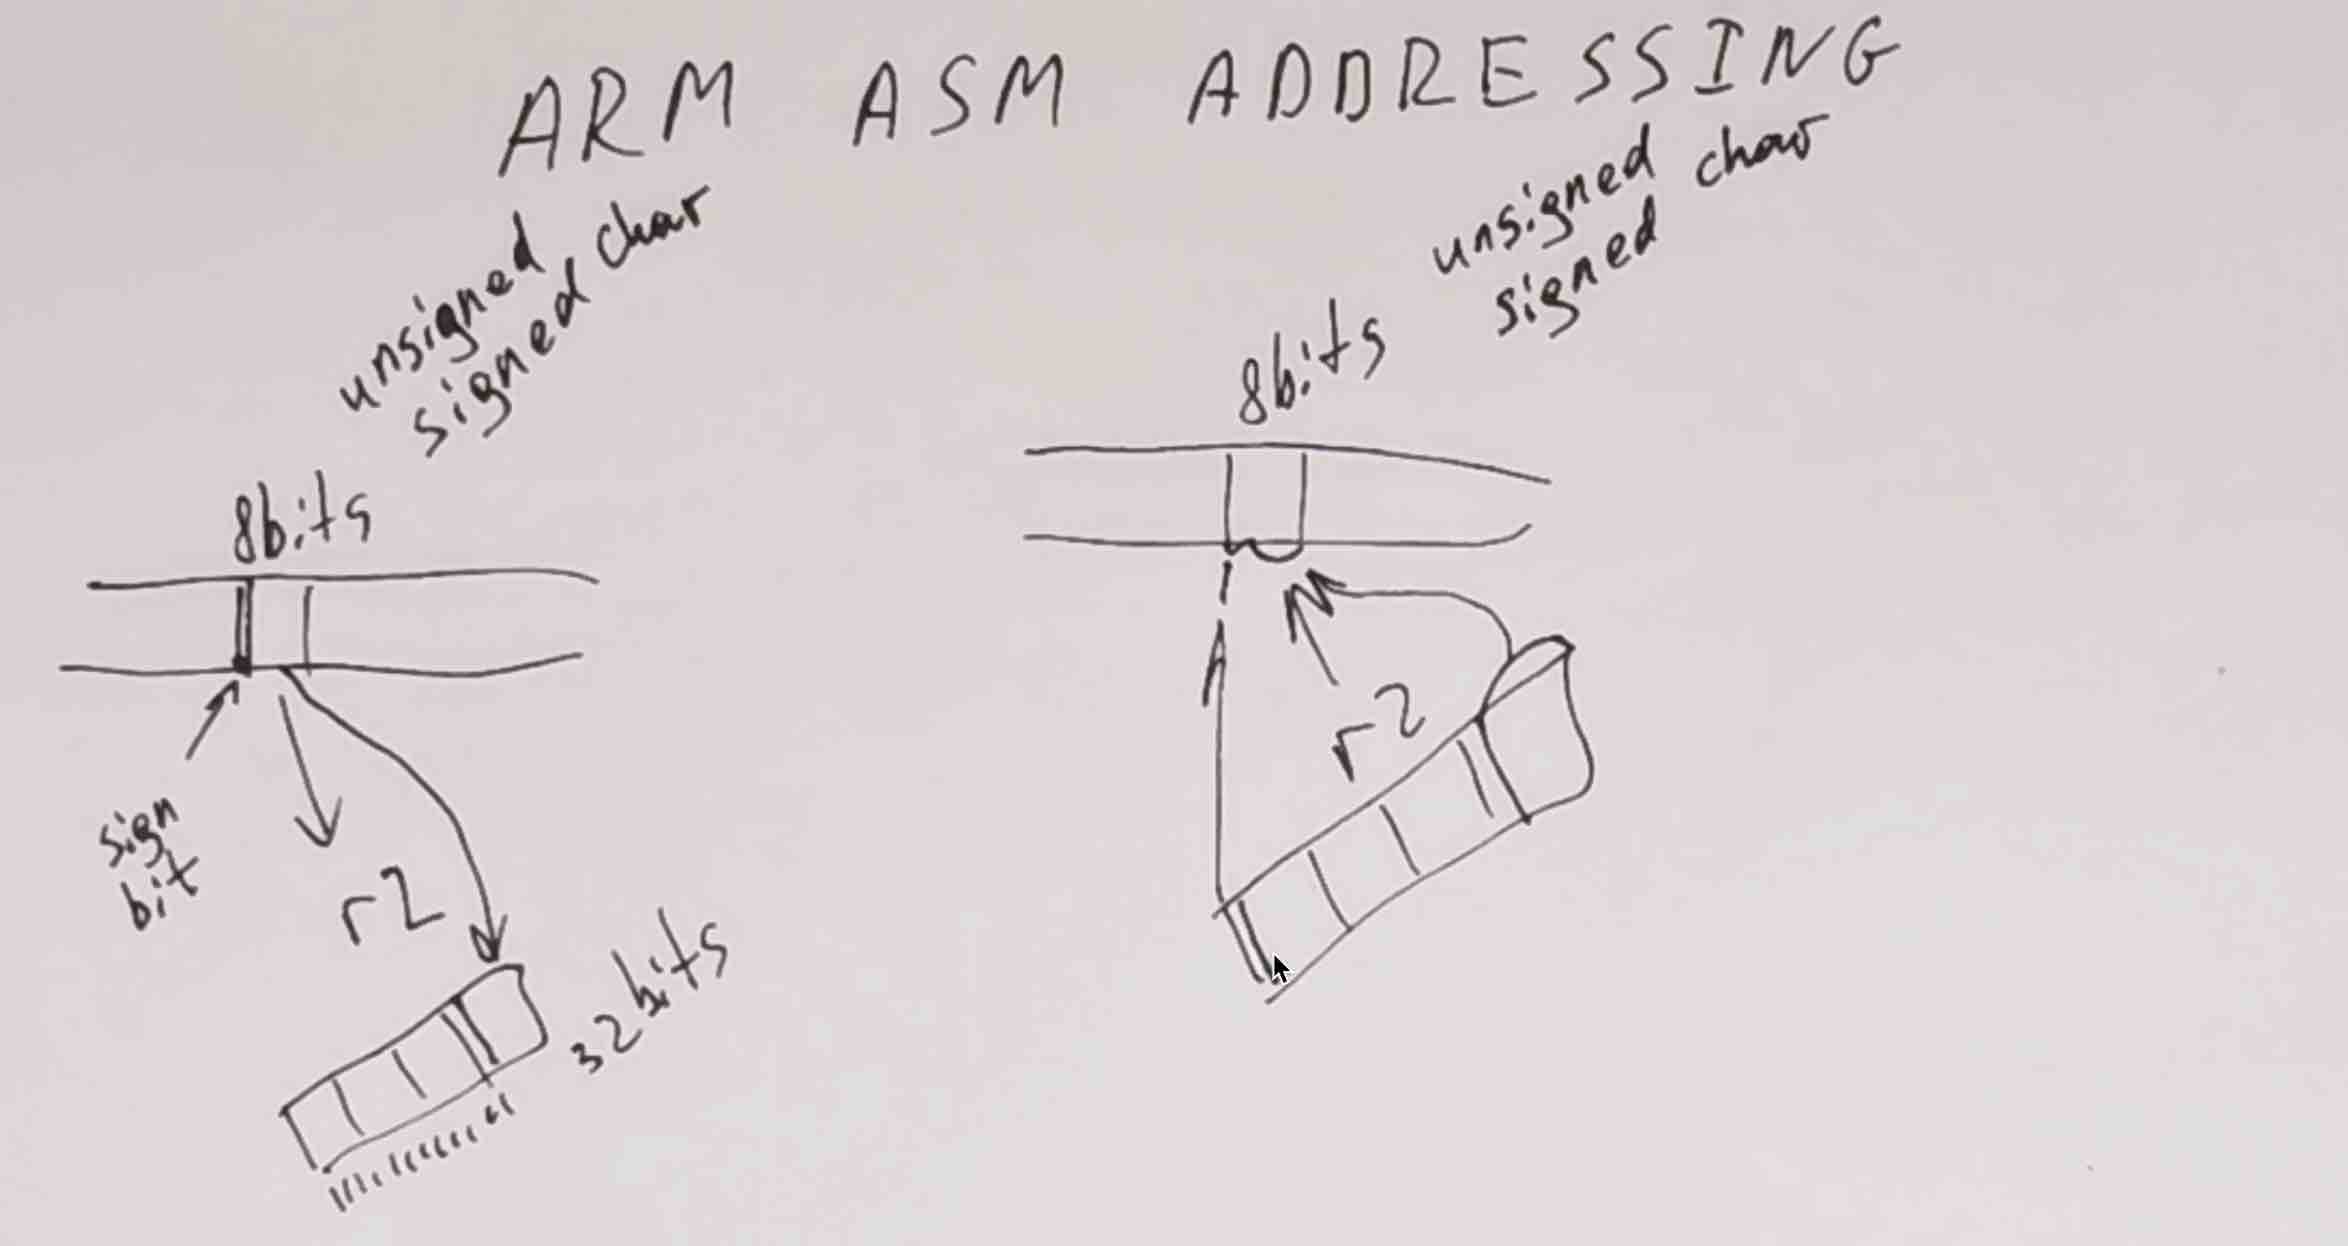 ARM ASM ADDRESSING
unsigned
signed char
8bits
sign
bit
r2
32 bits
unsigned char
signed
8bits
r2